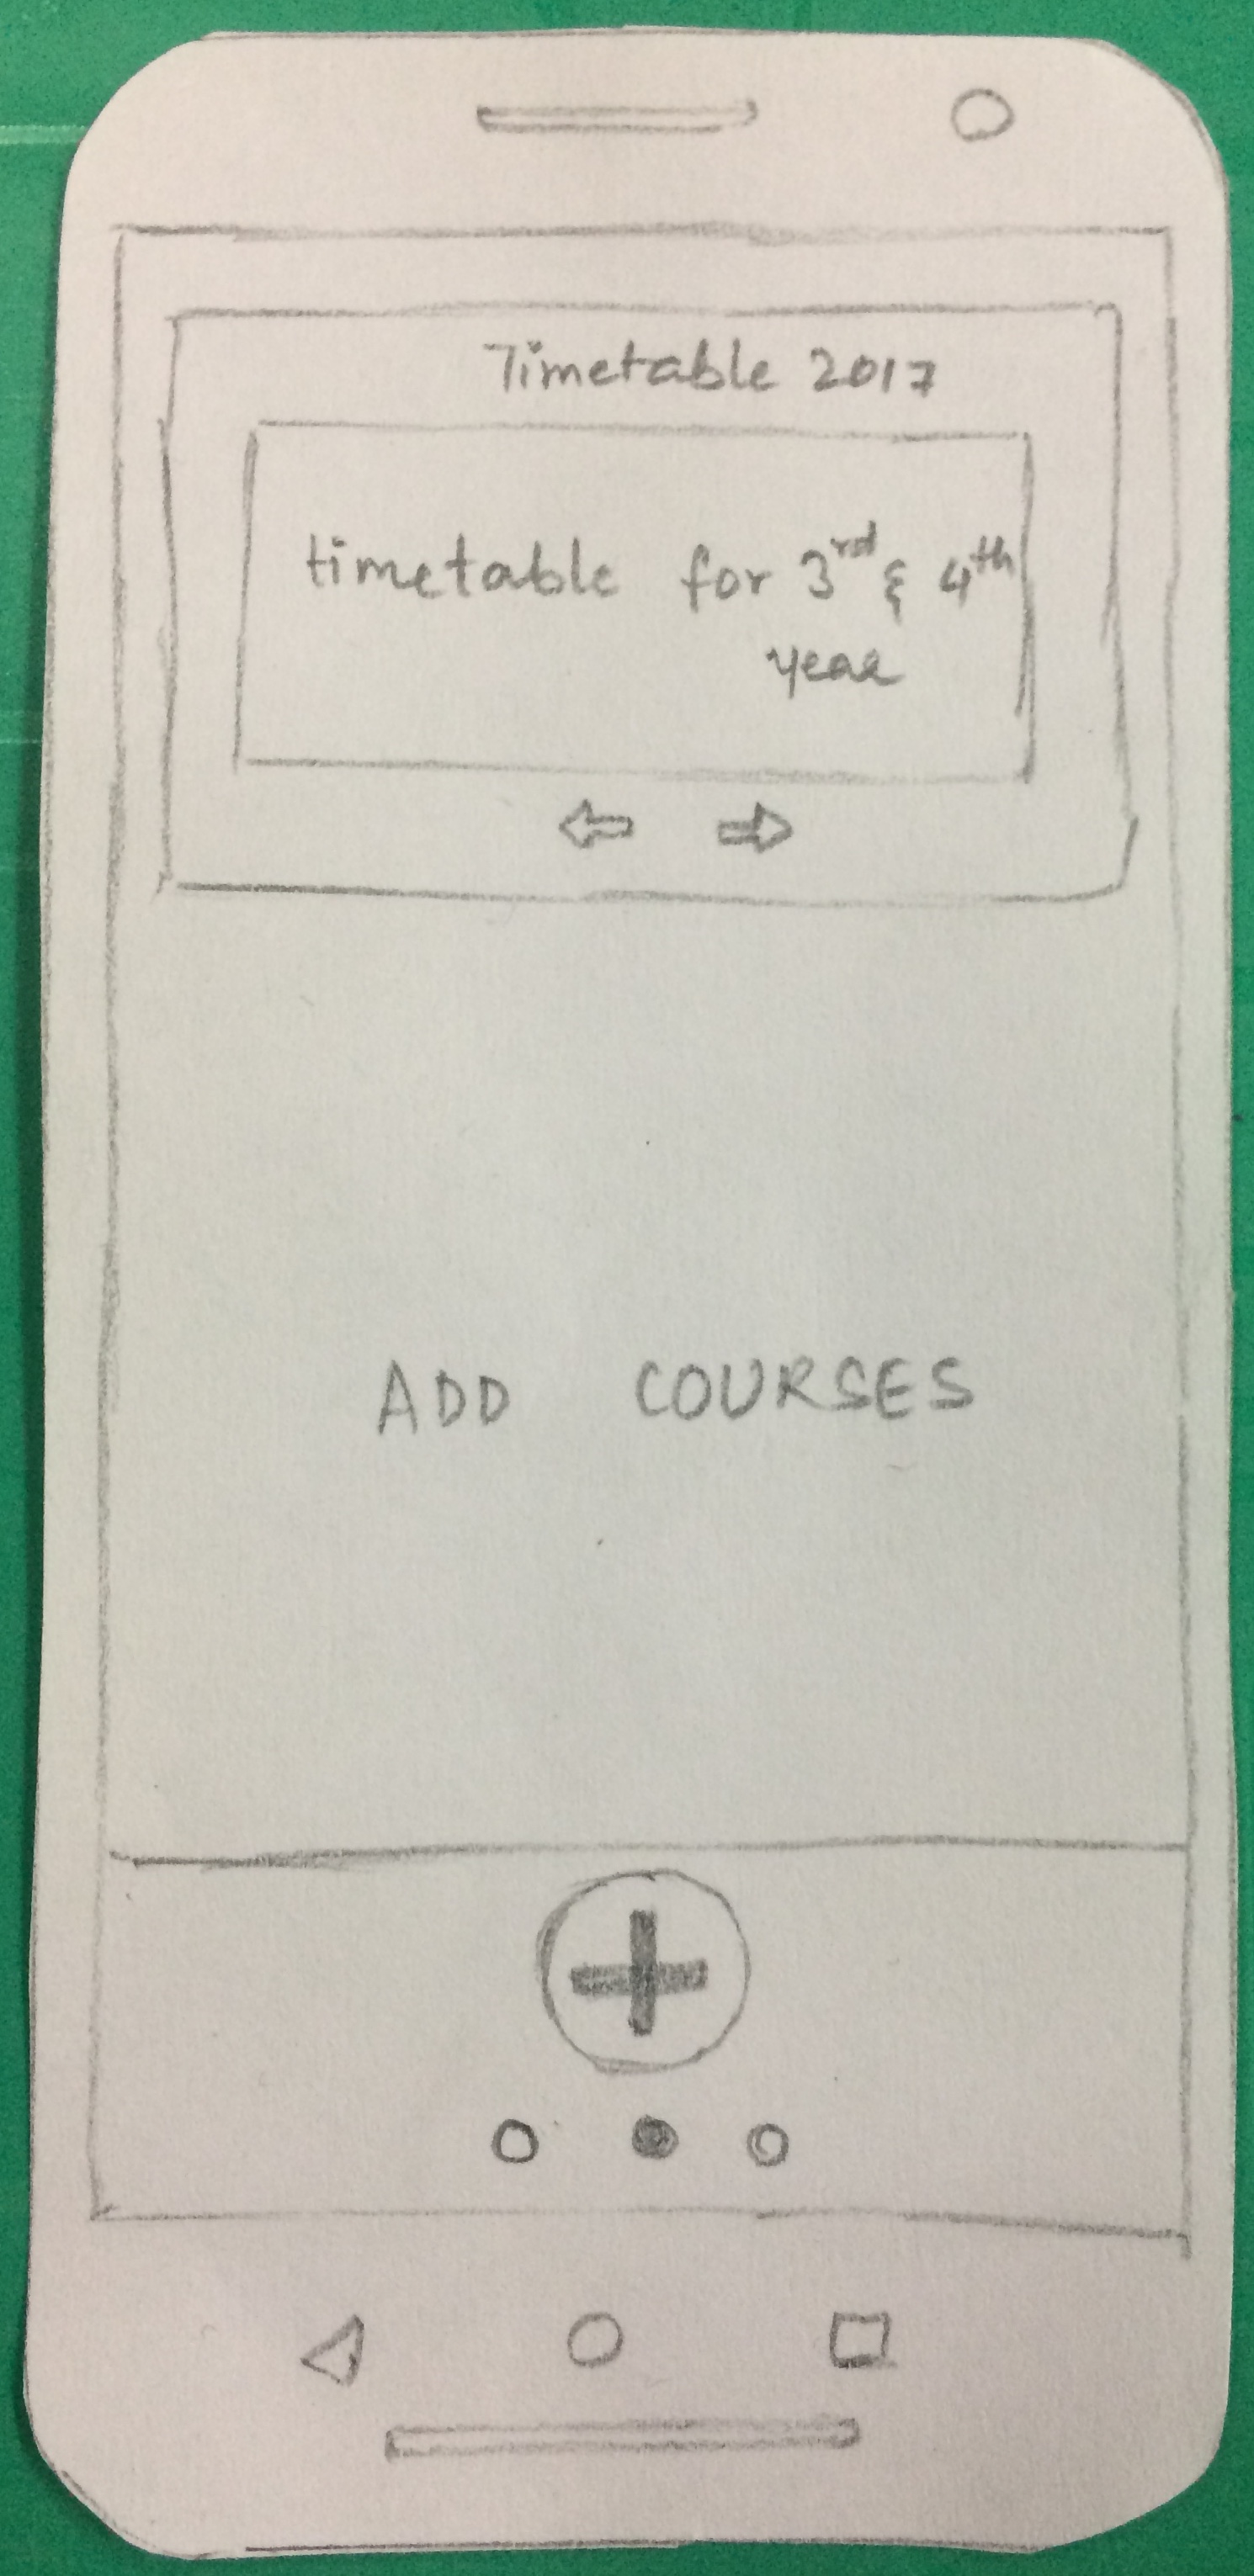 Timetable 2017
timetable for 3rd & 4th
year
ADD COURSES